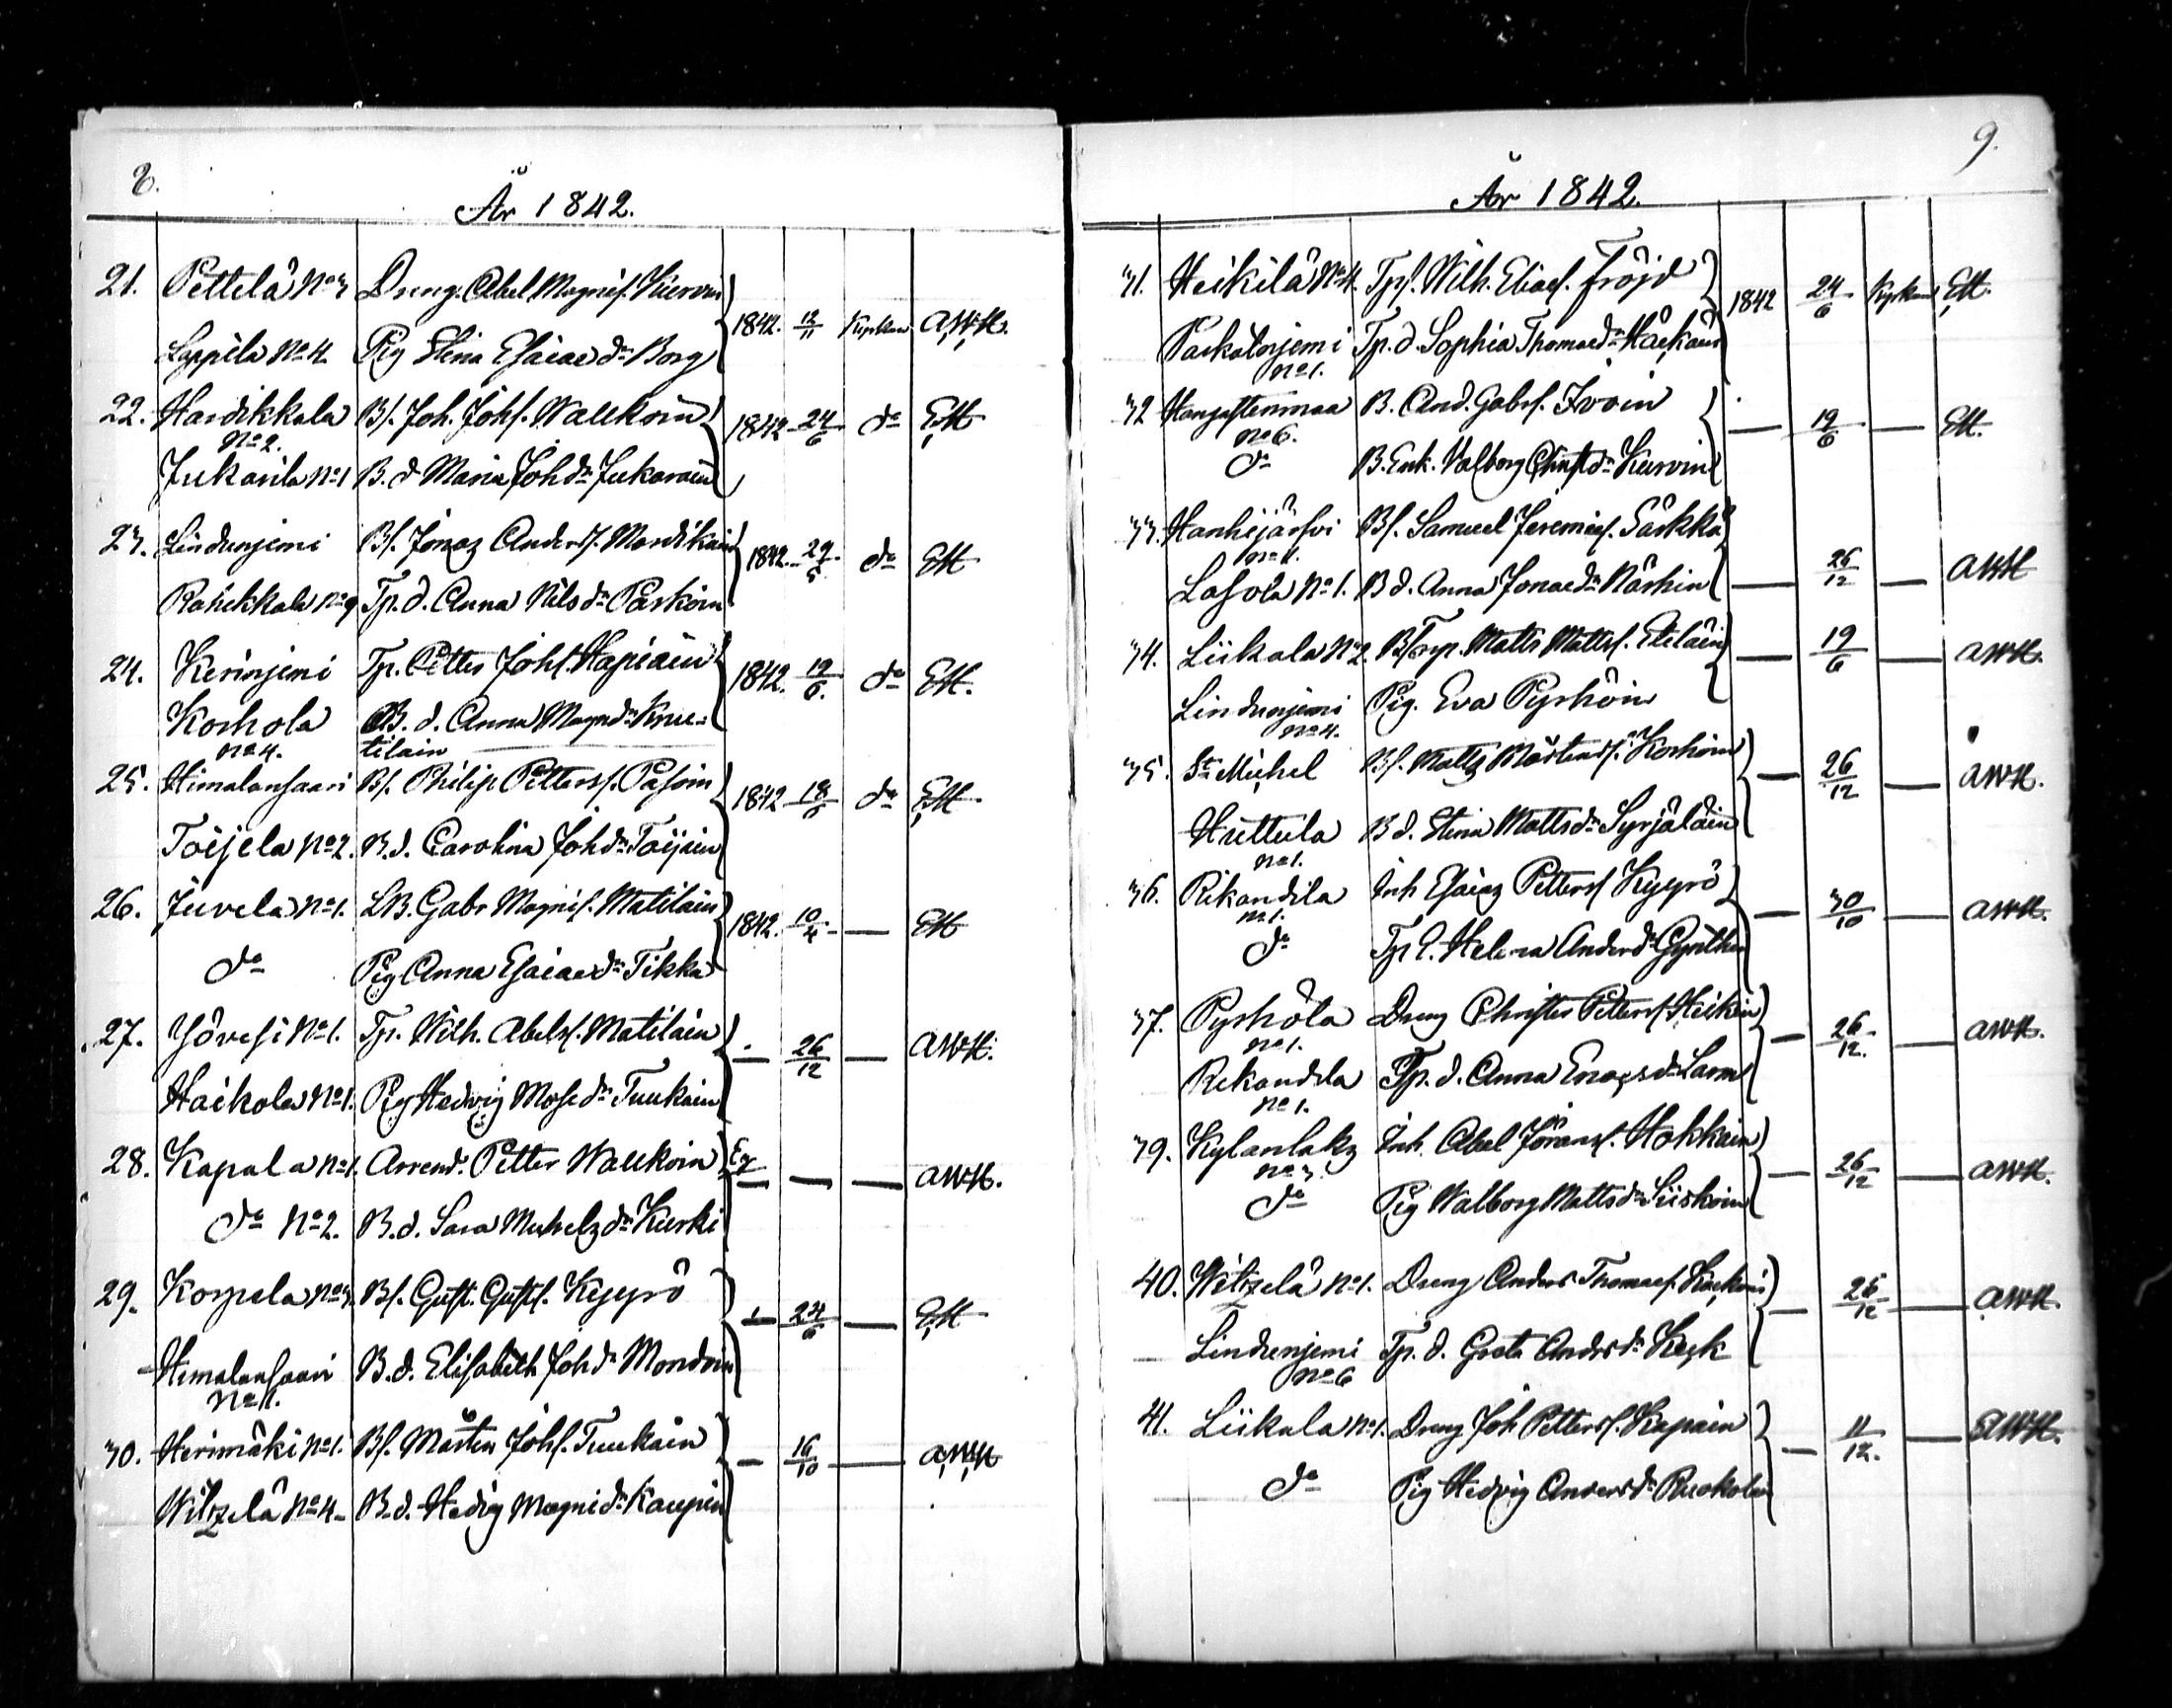 8.
År 1842.
21. Pettelä No 3 Dreng. Abel Magnis. Kiervin
1842. 12/11 Kyrkan A,W,H.
Lyypilä No 4. Pig Stina Esaiae dr Borg
22. Hardikkala Bs. Joh. Johs. Wallkoin
No 2. 1842 24/6 do EH
Jukarila No 1 B. d Maria Joh dr Jukarain
23. Lindunjemi Bs. Jonaz Anders. Mordikain
1842. 29/5 do EH
Rahikkala No 9 Tp. d. Anna Nils dr Parkoin
24. Kerinjemi Tp. Petter Johs. Hapiain
1842. 19/6. do EH.
Korhola B. d. Anna Magn dr Knu=
No 4. tilain
25. Himalansaari Bs. Philip Petters. Pasoin
1842 18/5 do EH
Toijela No 2. B. d. Carolina Joh dr Toijain
26. Juvela No 1. LB. Gabr Magnis. Matilain
1842. 10/4 — EH
do Pig Anna Esaiae dr Tikka
27. Yövesi No 1. Tp. Wilh. Abels. Matilain
— 26/12 — AWH.
Haikola No 1. Pig Hedvig Mose dr Tuukain
28. Kapala No 1. Arrend. Petter Wallkoin
— — — AWH.
do No 2. B. d. Sara Michelz dr Kurki
29. Korpela No 3. Bs. Gust. Gusts. Kyyrö
— 24/6 — EH
Himalansaari B. d. Elisabeth Joh dr Mondoin
No 11.
30. Herimäki No 1. Bs. Mårten Johs. Tuukain
— 16/10 — A,W,H
Witzelä No 4. B. d. Hedig Magni dr Kaupin
9.
År 1842.
31. Heikilä No 4. Tps. Wilh. Elias. Fröjd
1842 24/6 Kyrkan EH.
Paskatinjemi Tp. d. Sophia Thomae dr Häckäin
No 1.
32 Hangastenmaa B. And. Gabrs. Ivoin
No 6. — 19/6 — EH.
do B. Enk. Valborg Christ dr Kurvin
33. Hanhijärfvi Bs. Samuel Jeremias. Särkkä
No 11. — 26/12 — AWH
Lasola No 1. B d. Anna Jonae dr Närhin
34. Liikala No 2. Bs Torp. Matts Matts. Eteläin
— 19/6 — AWH.
Lindunjemi Pig. Eva Pyrhöin
No 4.
35. St Michel Bs. Matts Mårtens. Korhoin
— 26/12 — AWH.
Huttula B d. Stina Matts dr Syrjäläin
No 1.
36. Rikandila Inh Esaiaz Petters Kyyrö
No 1. — 30/10 — AWH.
do Tp E. Helena Anders dr Gynther
37. Pyrhölä Dreng Christer Petters Heikin
No 1. — 26/12. — AWH.
Rikandila Tp. d. Anna Enoes dr Larm
No 1.
39. Kylanlakz Inh. Abel Jörans. Hokkain
No 3. — 26/12 — AWH.
do Pig Walborg Matts dr Liiskoin
40. Witzelä No 1. Dreng Anders Thomaes. Häckäin
— 26/12 — AWH.
Lindunjemi Tp. d. Greta Anders dr Keyk
No 6
41. Liikala No 1. Dreng Joh Petters. Kapain
— 11/12. — AWH.
do Pig Hedvig Anders dr Ruokolain